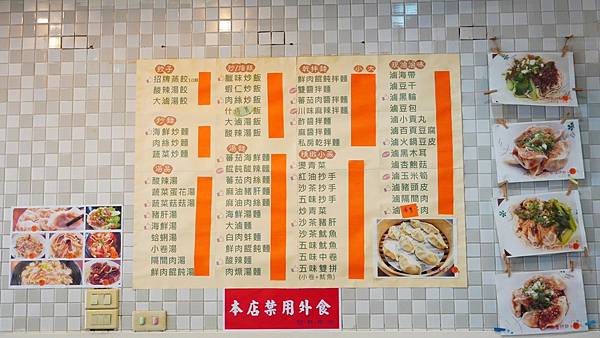 餃子
招牌蒸餃
酸辣湯餃
大滷湯餃
炒麵
海鮮炒麵
肉絲炒麵
蔬菜炒麵
酸辣湯
蔬菜蛋花湯
蔬菜菇菇湯
豬肝湯
海鮮湯
蛤蜊湯
小卷湯
隔間肉湯
鮮肉餛飩湯
臘味炒飯
蝦仁炒飯
肉絲炒飯
什
飯
大滷湯飯
酸辣湯飯
湯麵
蕃茄海鮮麵
餛飩酸辣麵
蕃茄肉絲麵
麻油豬肝麵
麻油肉絲麵
海鮮湯麵
大滷麵
白肉蚌麵
鮮肉餛飩麵
酸辣麵
肉燥湯麵
乾拌麵
小 大
鮮肉餛飩拌麵
雙醬拌麵
蕃茄肉醬拌麵
川味麻辣拌麵
酢醬拌麵
麻醬拌麵
私房乾拌麵
燙青菜
紅油抄手
沙茶抄手
五味抄手
炒青菜
沙茶豬肝
沙茶魷魚
五味魷魚
五味中卷
五味雙拼
(小卷+魷魚)
滷海帶
滷豆干
滷黑輪
滷豆包
滷小貢丸
滷百頁豆腐
滷火鍋豆皮
滷黑木耳
滷杏鮑菇
滷玉米筍
滷豬頭皮
滷隔間肉
滷
肉
本店禁用外食